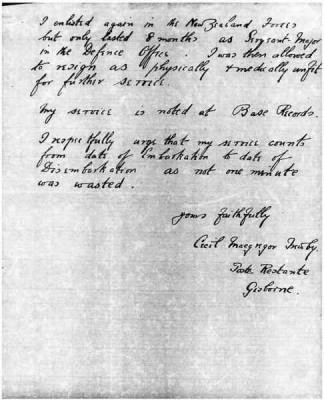 I enlisted again in the New Zealand Forces
but only lasted 8 months as Sergeant Major
in the Defence Office. I was then allowed
to resign as physically & medically unfit
for further service.
My service is noted at Base Records.
I respectfully urge that my service counts
from date of Embarkation to date of
Disembarkation as not one minute
was wasted.
yours faithfully
Cecil Macgregor
Poste Restante
Gisborne.